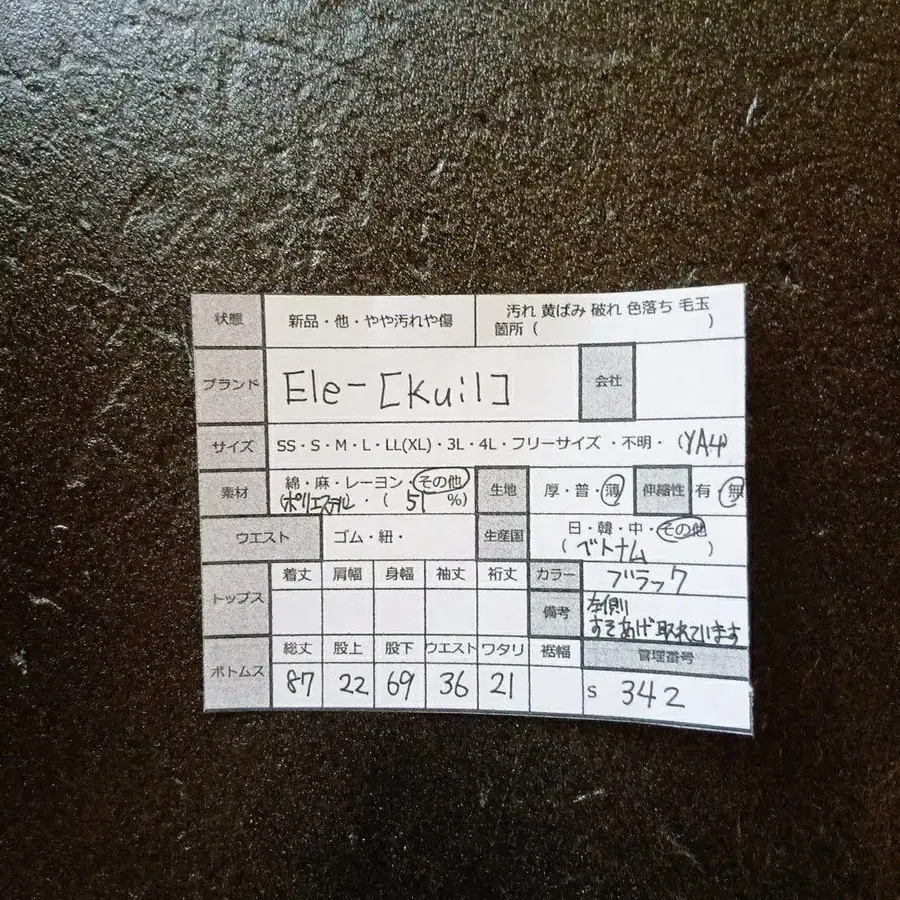 状態 新品・他・やや汚れや傷 汚れ 黄ばみ 破れ 色落ち 毛玉
箇所（ ）
ブランド Ele-[Kuil] 会社
サイズ SS・S・M・L・LL(XL)・3L・4L・フリーサイズ ・不明・ (YA4)
素材 綿・麻・レーヨン・その他 生地 厚・普・薄 伸縮性 有・無
(ポリエステル・( 51 %)
ウエスト ゴム・紐・ 生産国 日・韓・中・その他
( ベトナム )
トップス 着丈 肩幅 身幅 袖丈 裄丈 カラー ブラック
備考 左側
すそあげ取れています
ボトムス 総丈 股上 股下 ウエスト ワタリ 裾幅 管理番号
87 22 69 36 21 S 342